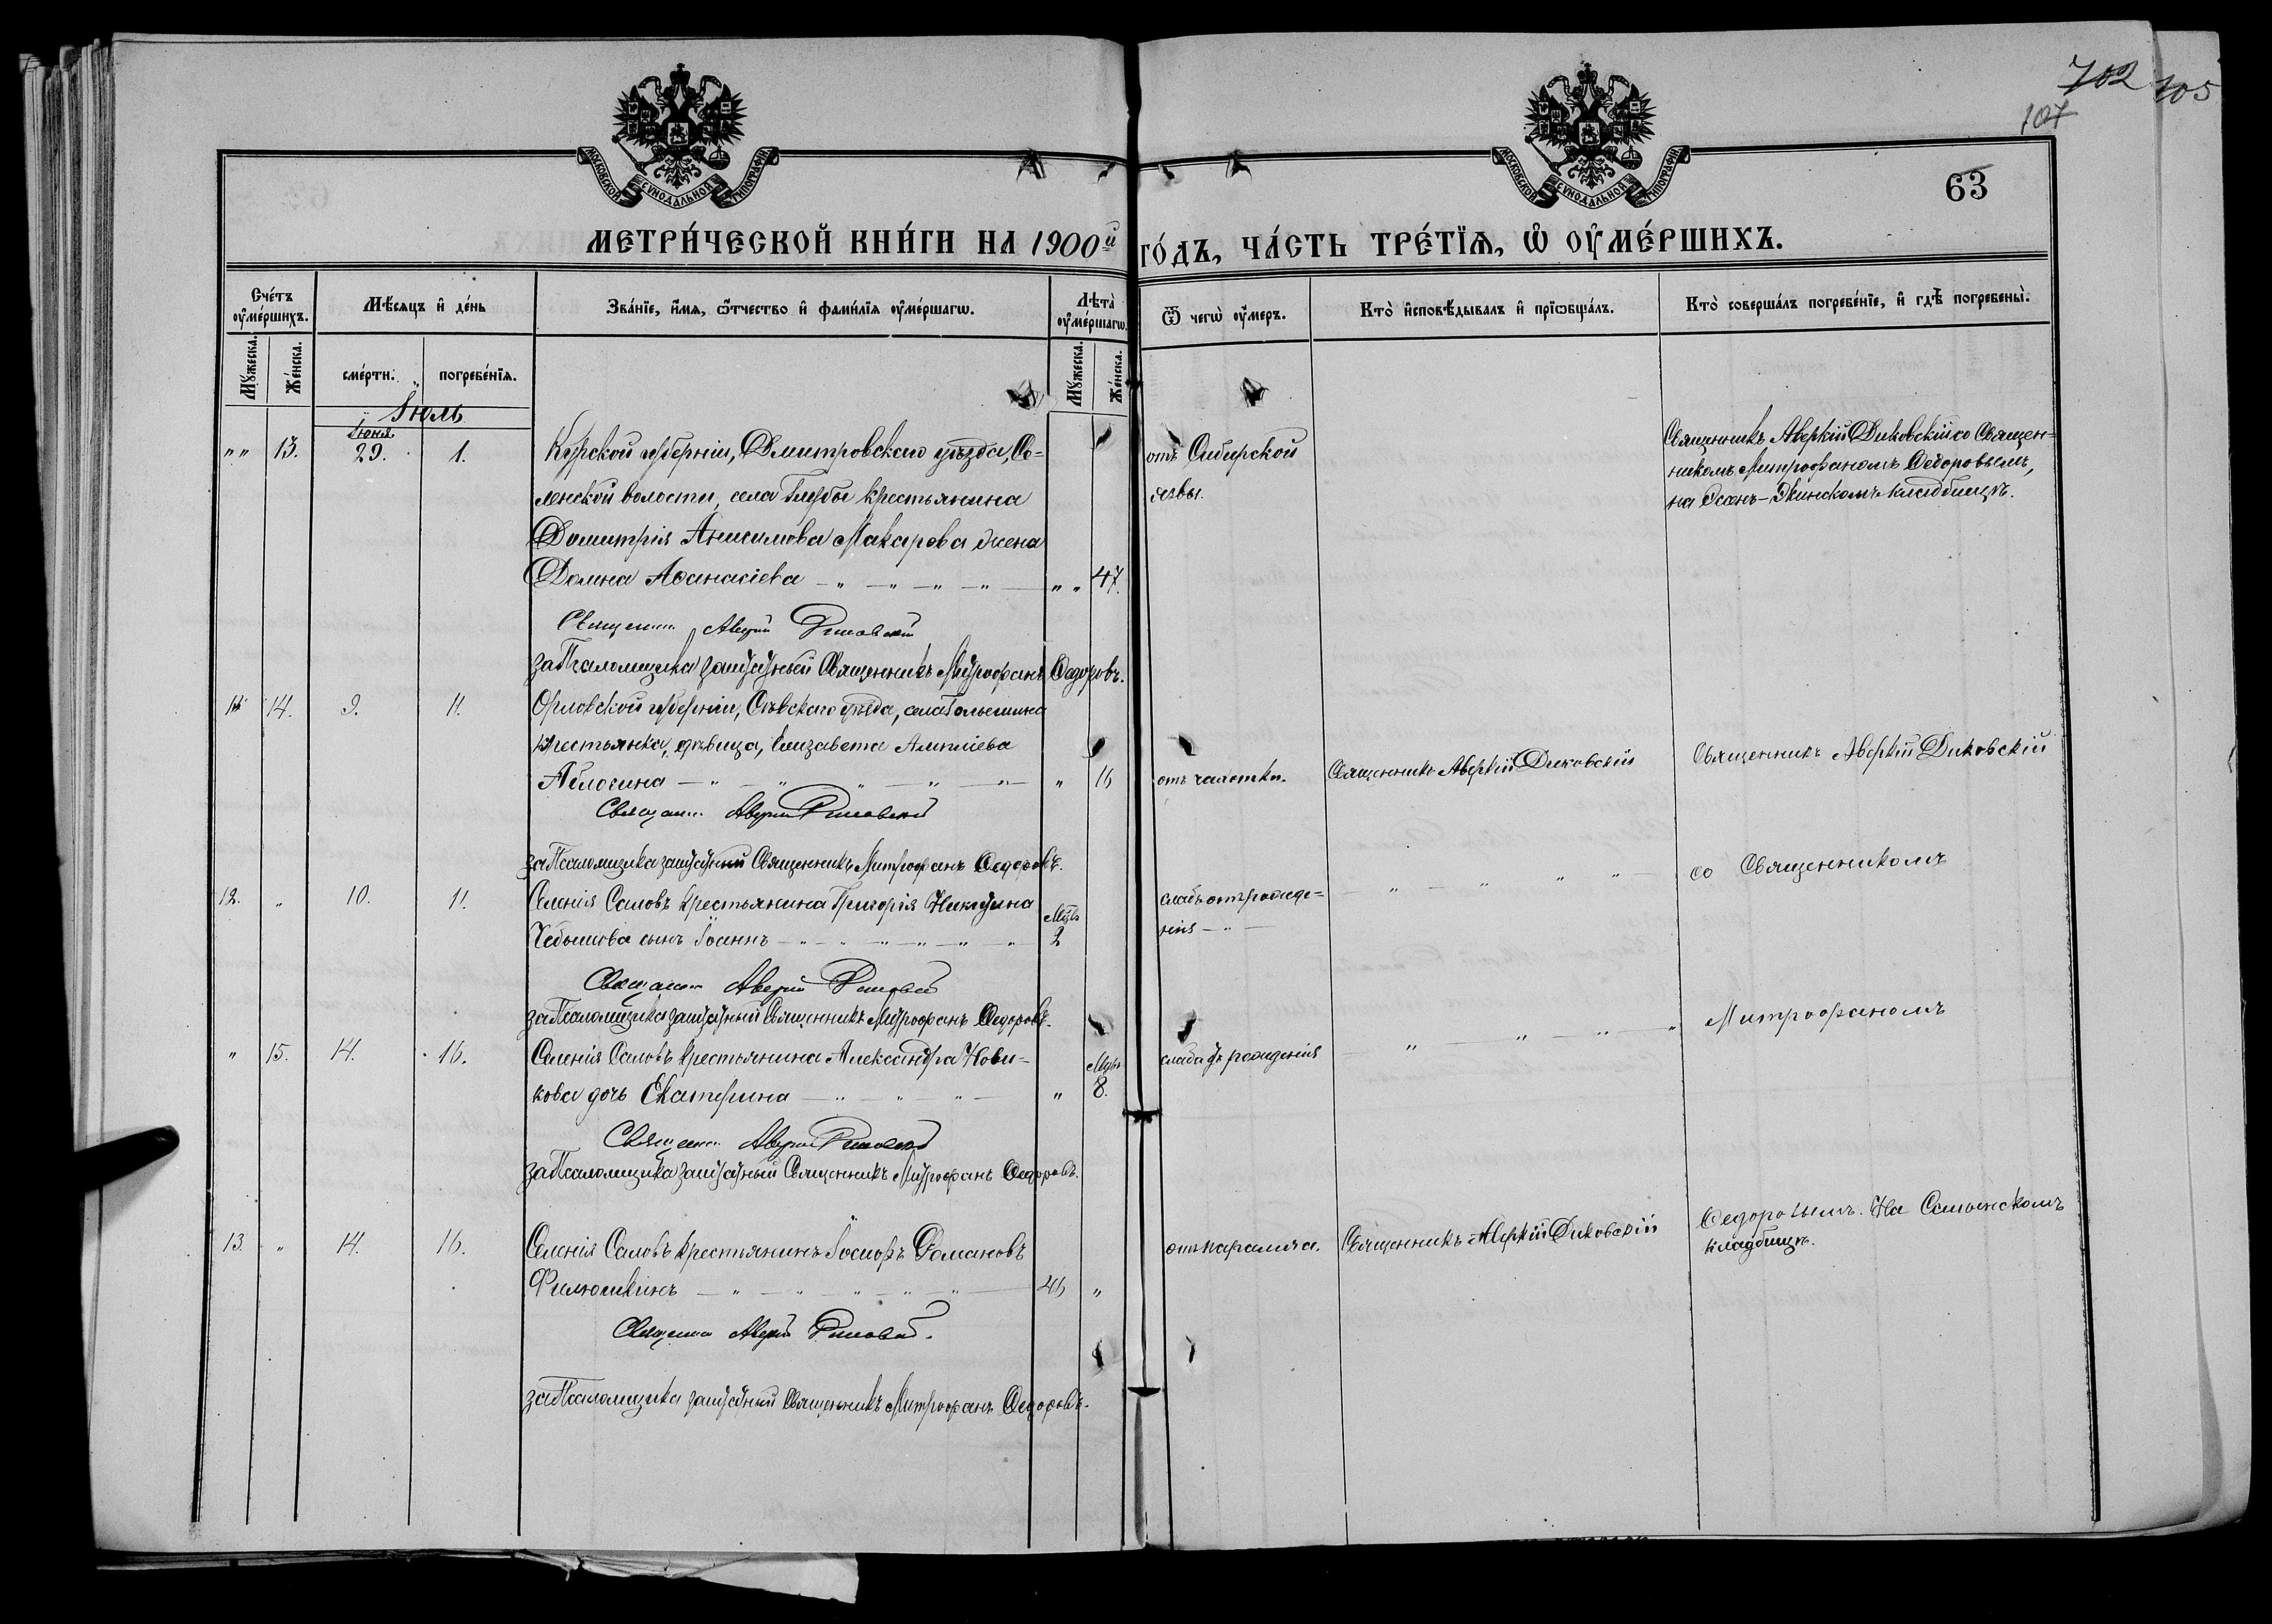 702 105
107
63
МОСКОВСКОЙ СѴНОДАЛЬНОЙ ТИПОГРАФІИ
МОСКОВСКОЙ СѴНОДАЛЬНОЙ ТИПОГРАФІИ
МЕТРИ́ЧЕСКОЙ КНИ́ГИ НА 1900й ГО́ДЪ, ЧА́СТЬ ТРЕ́ТІѦ, Ѡ ОУМЕ́РШИХЪ.
Сче́тъ оуме́ршихъ.
Мѣ́сяцъ и де́нь
Зва́нїе, и́мя, ѿтчество и фами́лїя оуме́ршагѡ.
Лѣта̀ оуме́ршагѡ.
Ѿ чегѡ̀ оу́меръ.
Кто̀ исповѣ́дывалъ и прїѡбща́лъ.
Кто̀ соверша́лъ погребе́нїе, и гдѣ̀ погребены̀.
Му́жеска.
Же́нска.
сме́рти.
погребе́нїя.
Му́жеска.
Же́нска.
Іюль
" " 13. Іюня 29. 1.
Курской губерніи, Дмитровскаго уѣзда, Со-
ленской волости, села Глубы крестьянина
Димитрія Анисимова Макарова жена
Домна Аѳанасіева " " 47.
отъ Сибирской
язвы.
Священникъ Аверкій Диковскій со Священ-
никомъ Митрофаномъ Ѳедоровымъ,
на кладбищѣ.
Священникъ Аверкій Диковскій
за Псаломщика заштатный Священникъ Митрофанъ Ѳедоровъ.
14. 9. 11.
Орловской губерніи, Сѣвскаго уѣзда, села
крестьянка, дѣвица, Елизавета Алипіева
Аблогина " 16
отъ чахотки.
Священникъ Аверкій Диковскій
Священникъ Аверкій Диковскій
Священникъ Аверкій Диковскій
за Псаломщика заштатный Священникъ Митрофанъ Ѳедоровъ.
12. " 10. 11.
Селенія Саловъ крестьянина Григорія Никитина
Чебышова сынъ Іоаннъ Мѣс. 2
слаб. отъ рожде-
нія
со Священникомъ
Священникъ Аверкій Диковскій
за Псаломщика заштатный Священникъ Митрофанъ Ѳедоровъ.
" 15. 14. 16.
Селенія Саловъ крестьянина Александра Нови-
кова дочь Екатерина " Мѣс. 8.
слаба отъ рожденія
Митрофаномъ
Священникъ Аверкій Диковскій
за Псаломщика заштатный Священникъ Митрофанъ Ѳедоровъ.
13. " 14. 16.
Селенія Саловъ крестьянинъ Іосифъ Романовъ
Филюшкинъ 46 "
отъ паралича.
Священникъ Аверкій Диковскій
Ѳедоровымъ. На
кладбищѣ.
Священникъ Аверкій Диковскій.
за Псаломщика заштатный Священникъ Митрофанъ Ѳедоровъ.